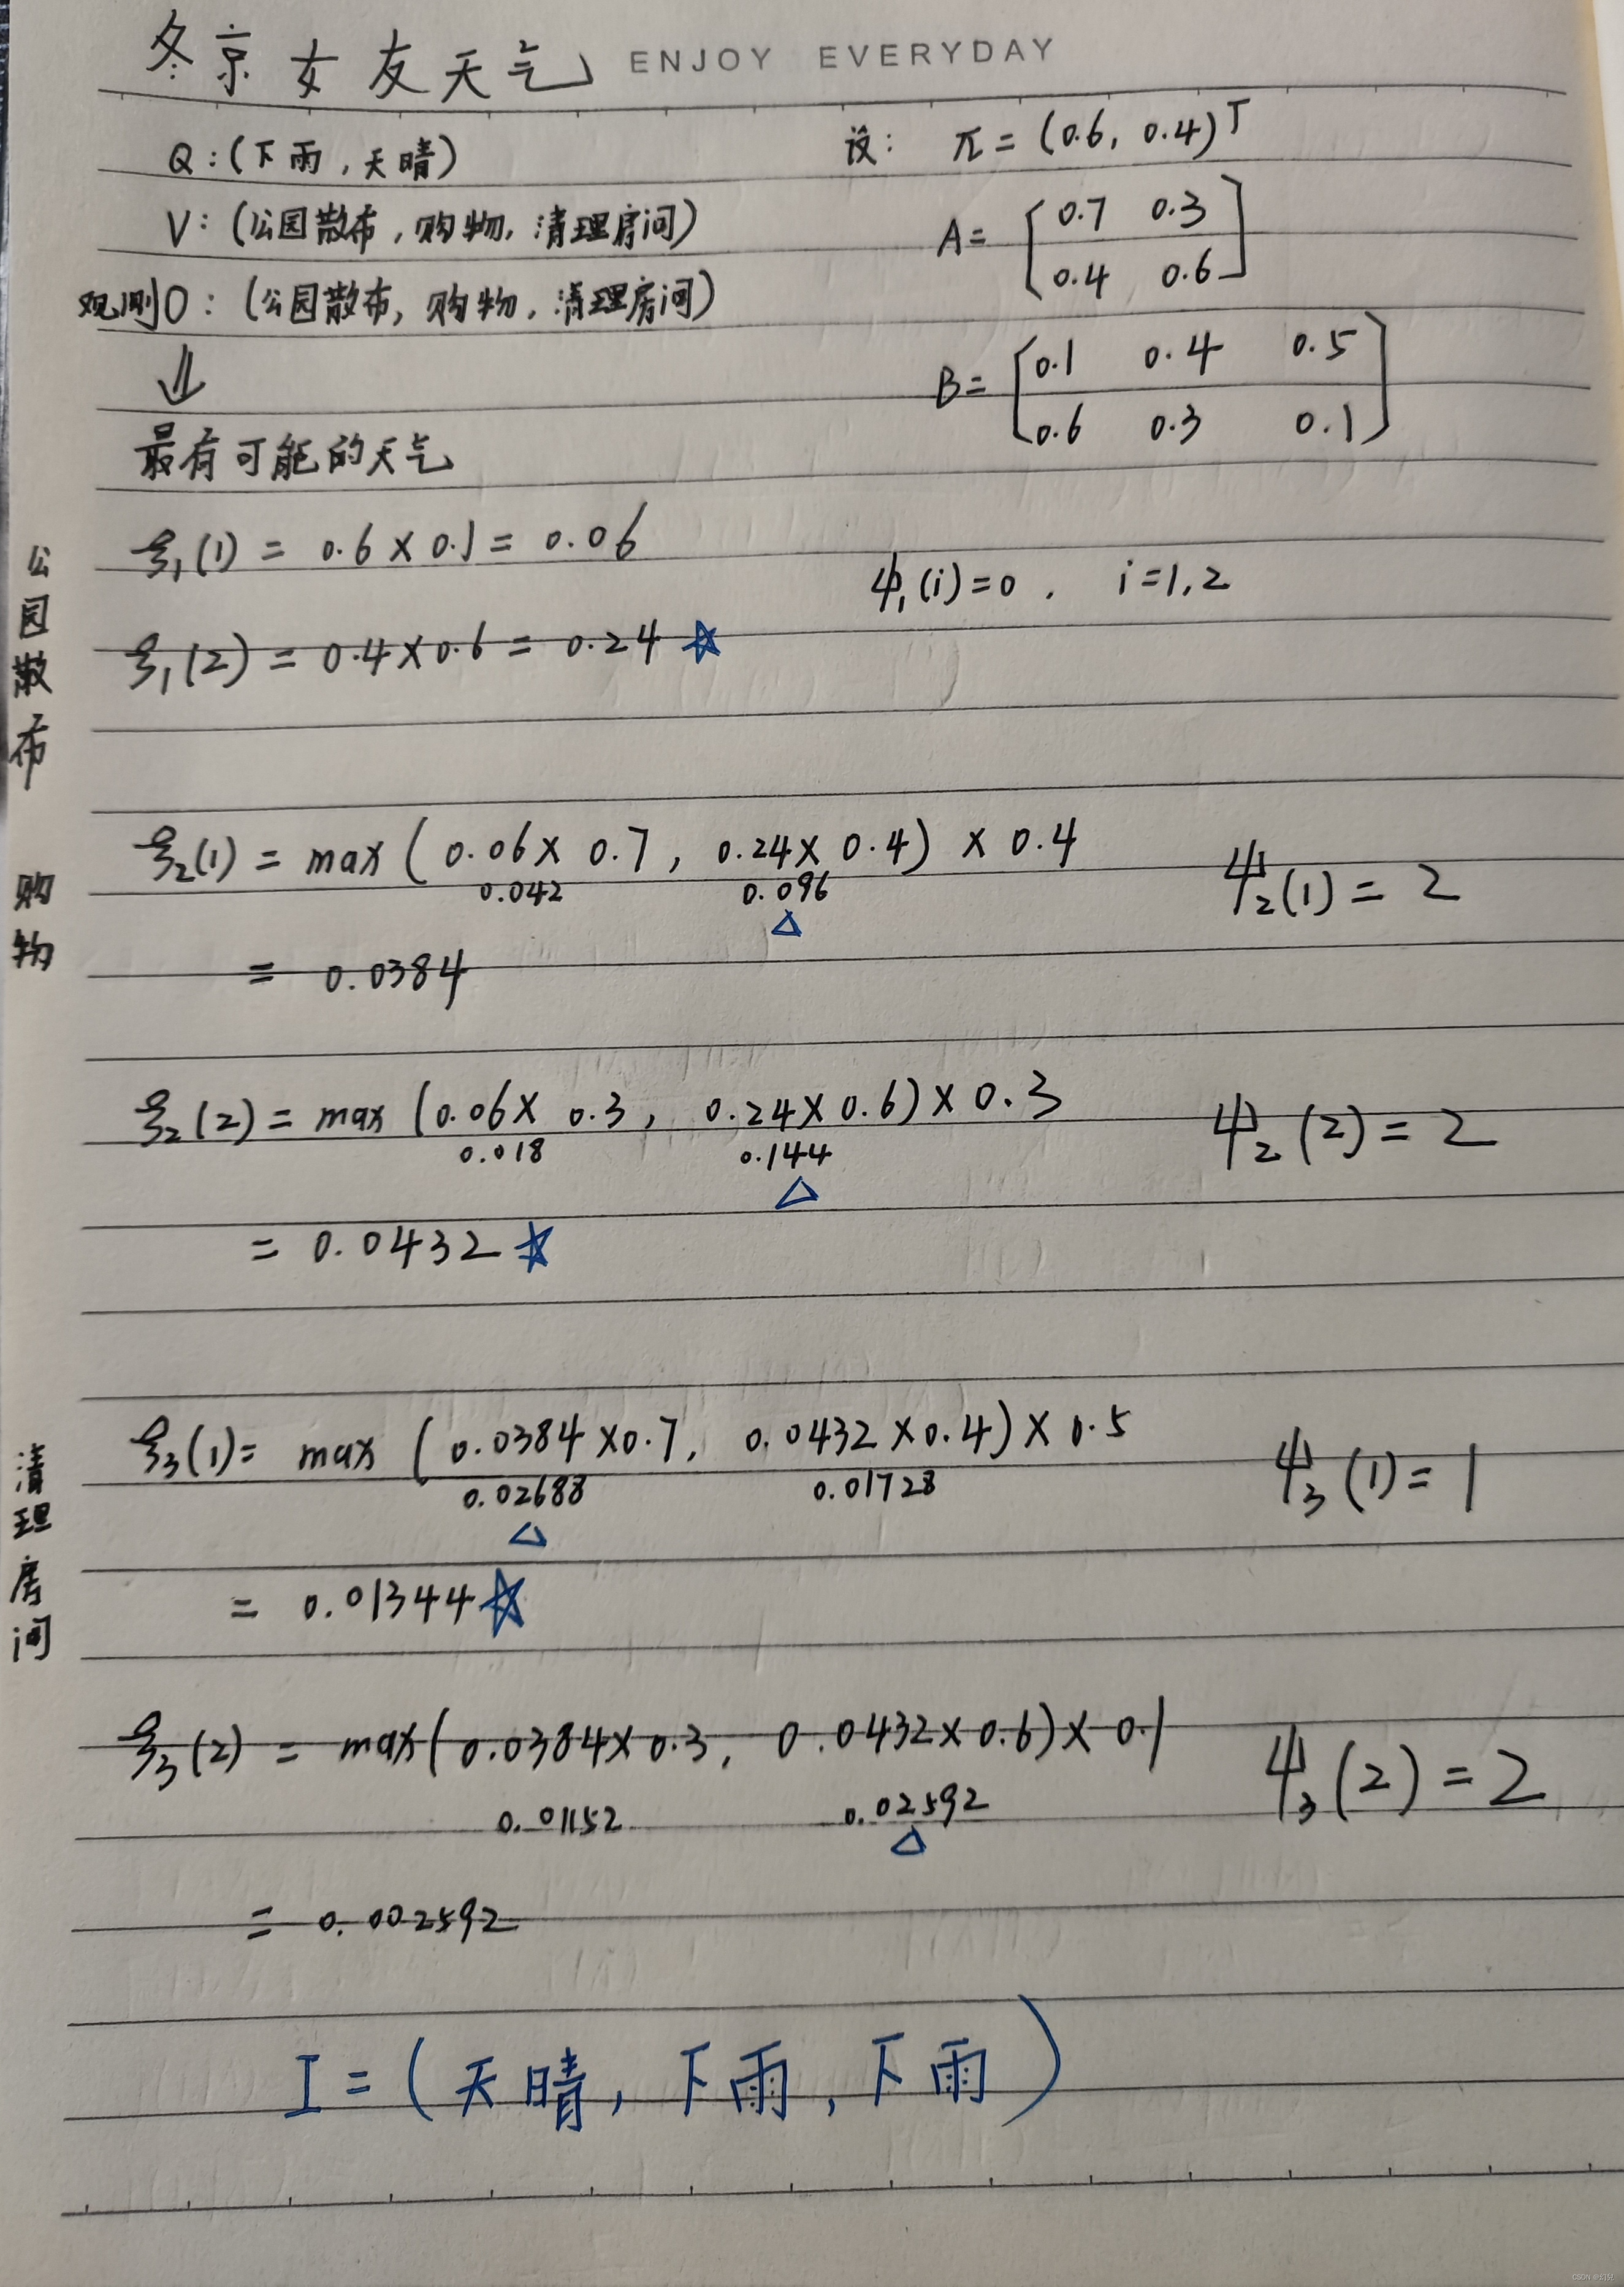 冬京女友天气 ENJOY EVERYDAY
Q:(下雨,天晴)
设: π=(0.6, 0.4)ᵀ
V:(公园散布,购物,清理房间)
A= [0.7 0.3
0.4 0.6]
观测O:(公园散布,购物,清理房间)
⇓
B= [0.1 0.4 0.5
0.6 0.3 0.1]
最有可能的天气
公园散布
ξ₁(1) = 0.6×0.1 = 0.06
ψ₁(i)=0. i=1,2
ξ₁(2) = 0.4×0.6 = 0.24 ☆
购物
ξ₂(1) = max(0.06×0.7, 0.24×0.4)×0.4 ψ₂(1)=2
0.042 0.096
△
= 0.0384
ξ₂(2) = max(0.06×0.3, 0.24×0.6)×0.3 ψ₂(2)=2
0.018 0.144
△
= 0.0432 ☆
清理房间
ξ₃(1) = max(0.0384×0.7, 0.0432×0.4)×0.5 ψ₃(1)=1
0.02688 0.01728
△
= 0.01344 ☆
ξ₃(2) = max(0.0384×0.3, 0.0432×0.6)×0.1 ψ₃(2)=2
0.01152 0.02592
△
= 0.002592
I=(天晴,下雨,下雨)